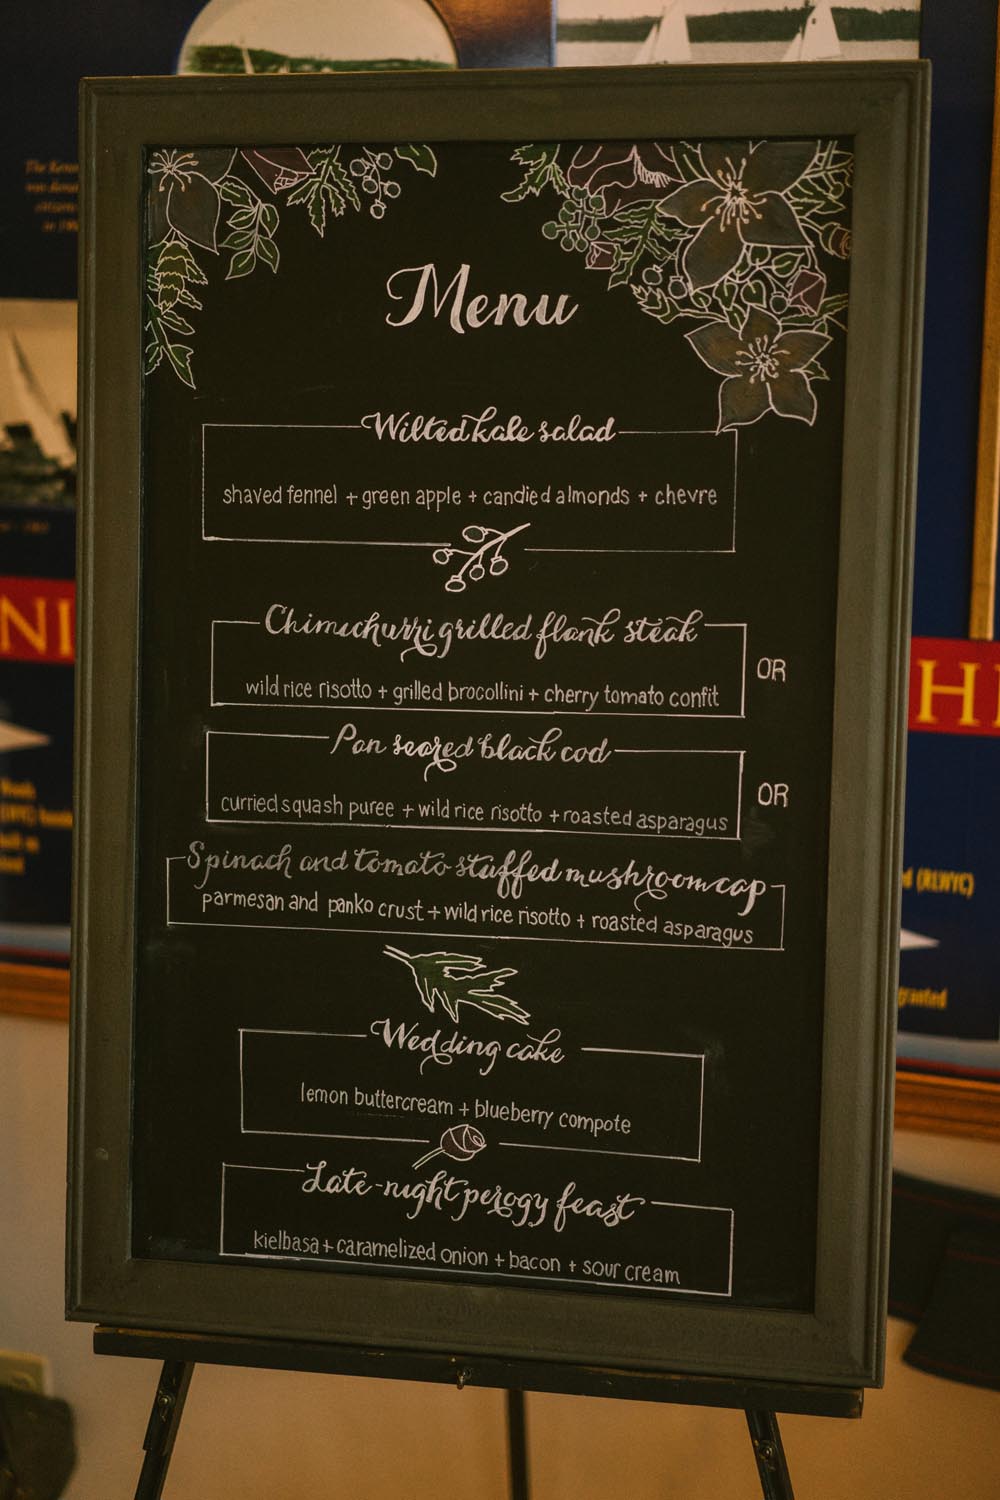 Menu
Wilted kale salad
shaved fennel + green apple + candied almonds + chevre
Chimichurri grilled flank steak
wild rice risotto + grilled brocollini + cherry tomato confit
OR
Pan seared black cod
curried squash puree + wild rice risotto + roasted asparagus
OR
Spinach and tomato stuffed mushroom cap
parmesan and panko crust + wild rice risotto + roasted asparagus
Wedding cake
lemon buttercream + blueberry compote
Late-night perogy feast
kielbasa + caramelized onion + bacon + sour cream
NI
H
(RLWYC)
granted